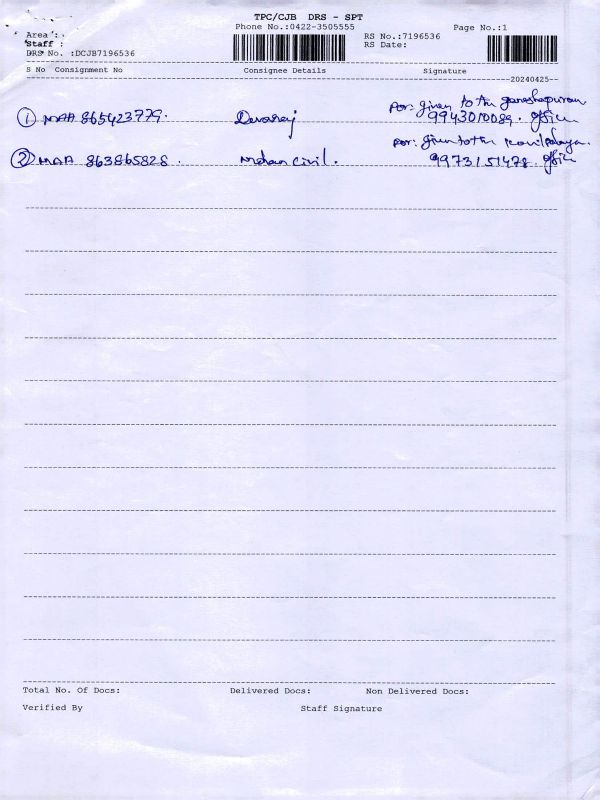 TPC/CJB DRS - SPT
Phone No.:0422-3505555 Page No.:1
Area :
Staff :
RS No.:7196536
RS Date:
DRS No. :DCJB7196536
S No Consignment No Consignee Details Signature
20240425
① MAA 865423779. Devaraj por: given to the ganeshapuram
9943010089. office
② MAA 863865828. Mohan civil. por: given to the
9973151478. office
Total No. Of Docs: Delivered Docs: Non Delivered Docs:
Verified By Staff Signature